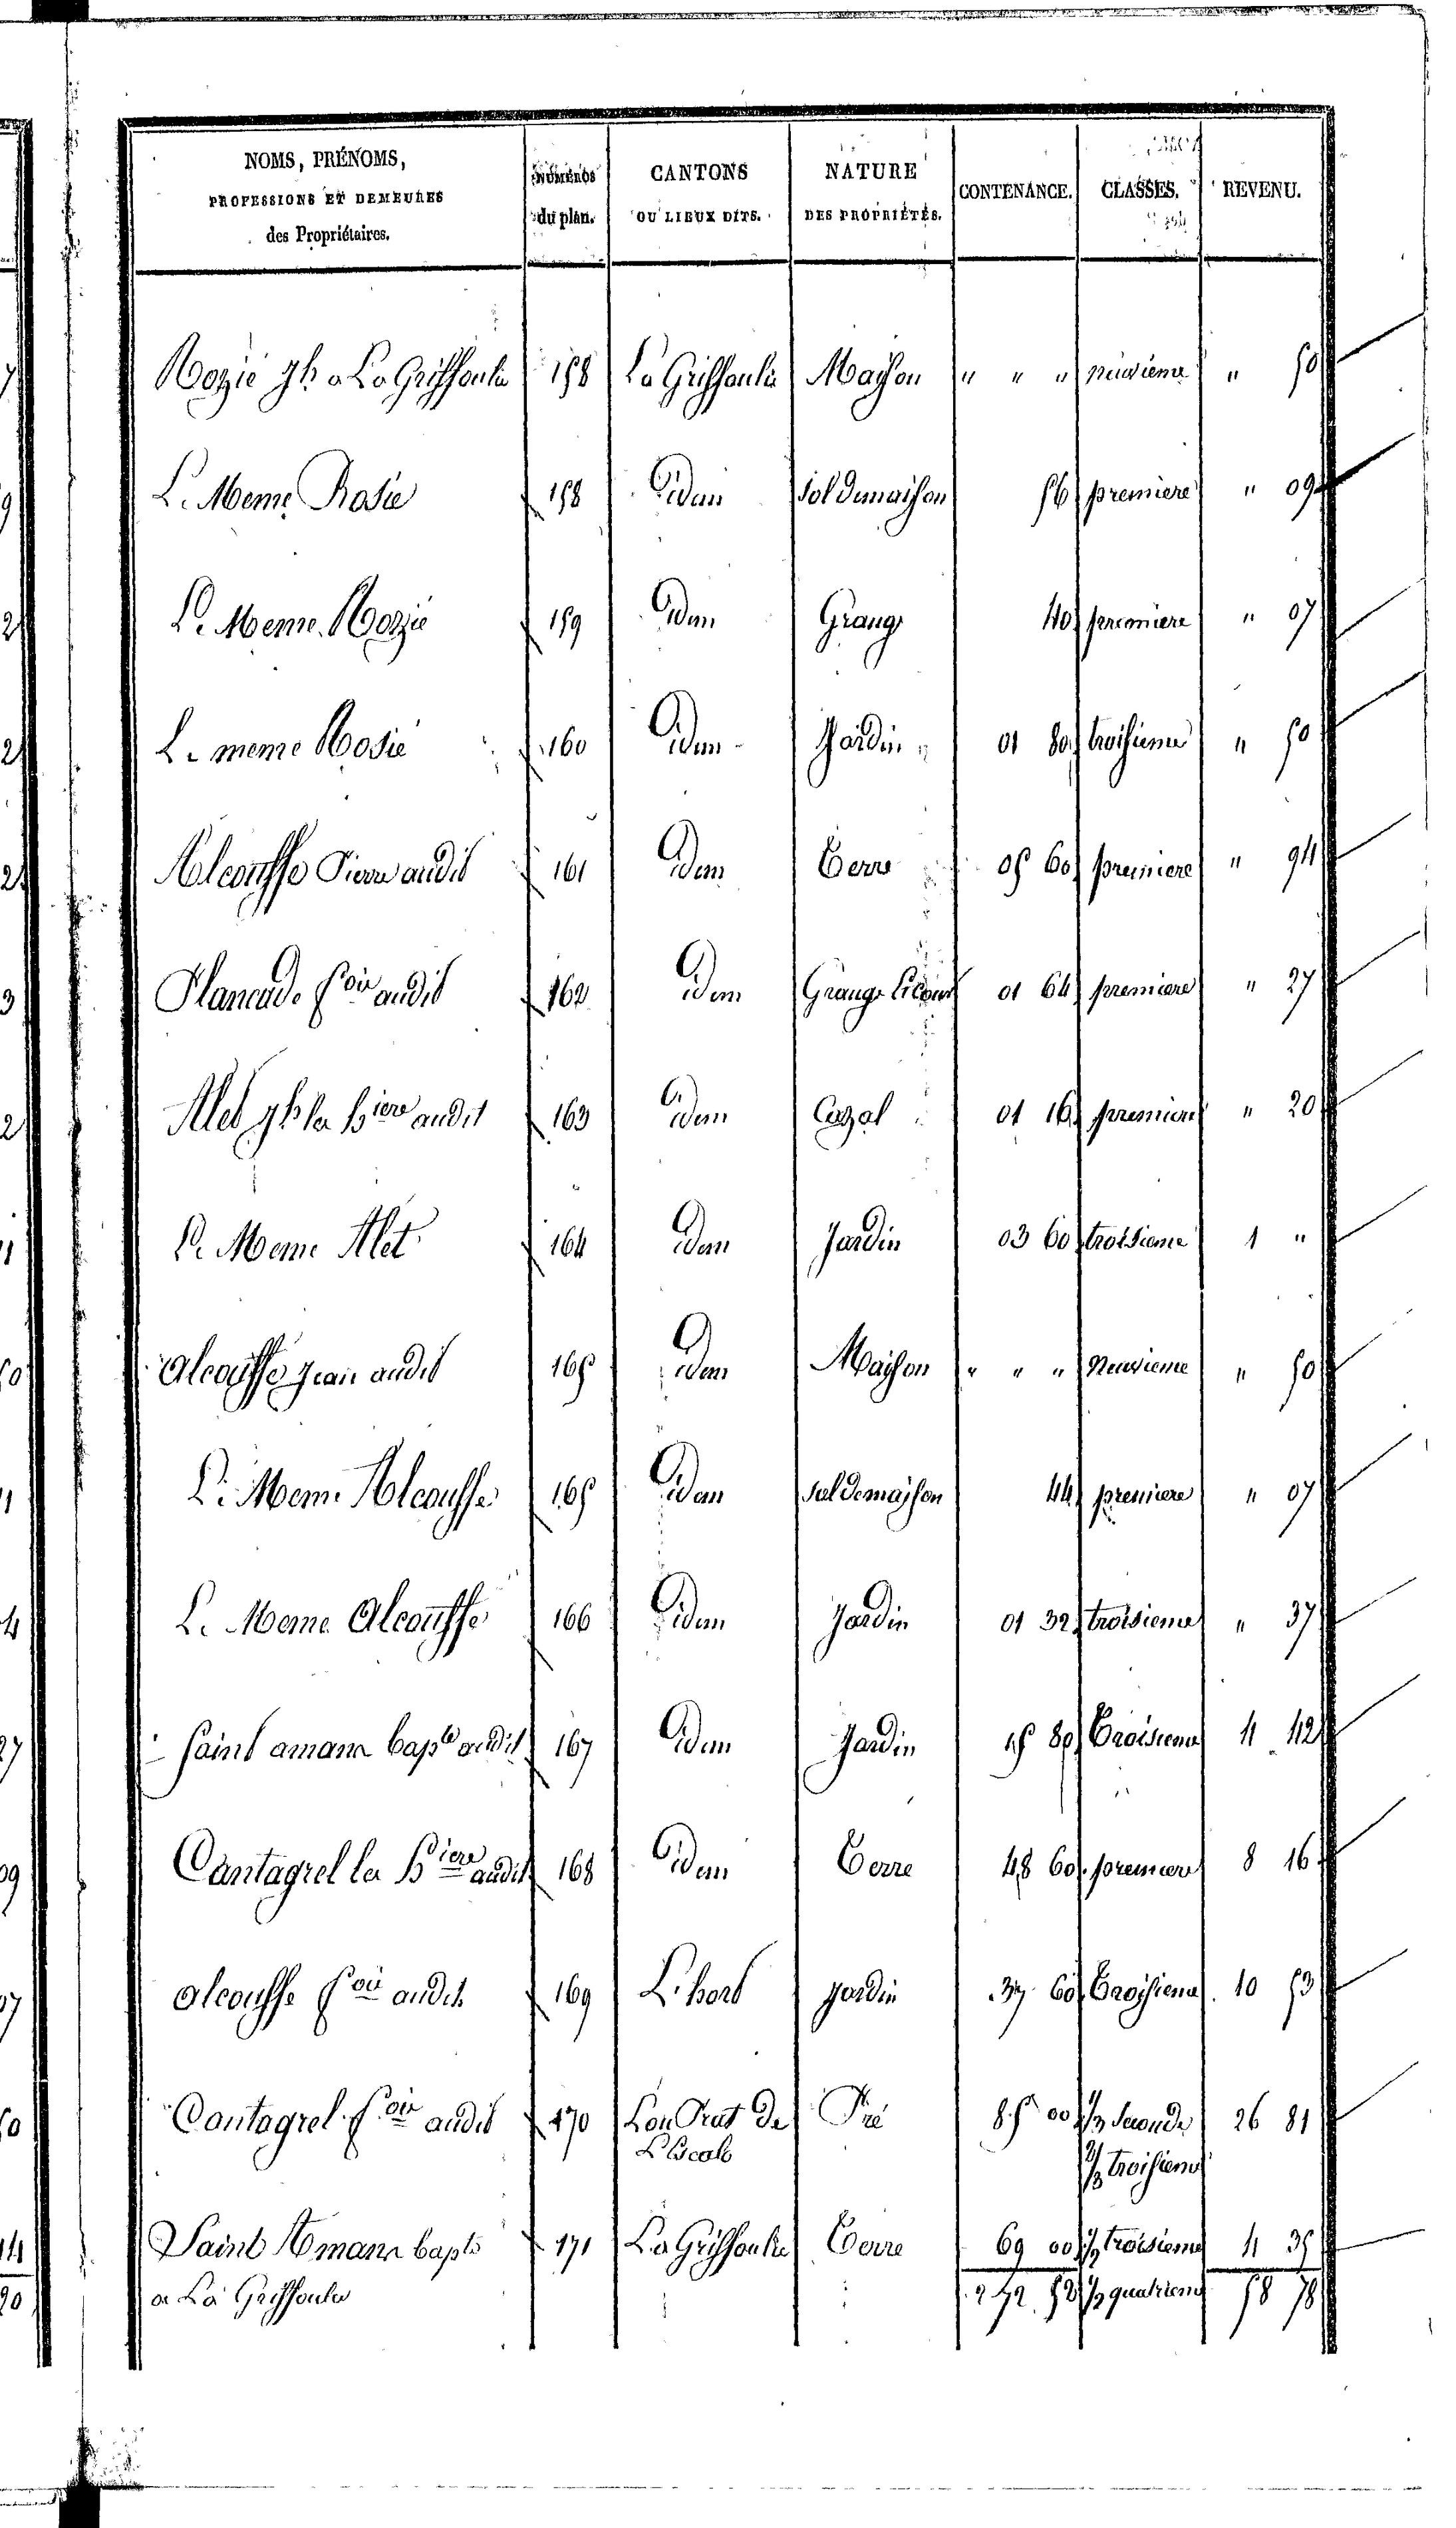 NOMS, PRÉNOMS, PROFESSIONS ET DEMEURES des Propriétaires. NUMÉROS du plan. CANTONS OU LIEUX DITS. NATURE DES PROPRIÉTÉS. CONTENANCE. CLASSES. REVENU.
Rozié jh a La Griffoulie 158 La Griffoulie Maison " " " neuvieme " 50
Le Meme Rosie 158 idem sol de maison 56 premiere " 09
Le Meme Rozié 159 idem Grange 40 premiere " 07
Le meme Rosié 160 idem Jardin 01 80 troisieme " 50
Alcouffe Pierre audit 161 idem Terre 05 60 premiere " 94
Plancade foix audit 162 idem Grange 01 64 premiere " 27
Alet jh la audit 163 idem Cazal 01 16 premiere " 20
Le Meme Alet 164 idem Jardin 03 60 troisieme 1 "
Alcouffe Jean audit 165 idem Maison " " " Neuvieme " 50
Le Meme Alcouffe 165 idem sol de maison 44 premiere " 07
Le Meme Alcouffe 166 idem Jardin 01 32 troisieme " 37
Saint amans bapte audit 167 idem Jardin 15 80 Troisieme 4 42
Cantagrel la audit 168 idem Terre 48 60 premiere 8 16
alcouffe foix audit 169 L'hort jardin 37 60 Troisieme 10 53
Cantagrel foix audit 170 Lou Prat de 85 00 1/3 seconde 26 81
Pré 2/3 troisieme
Saint Amans bapte 171 La Griffoulie Terre 69 00 1/2 troisieme 4 35
a La Griffoulie 272 52 1/2 quatrieme 58 78